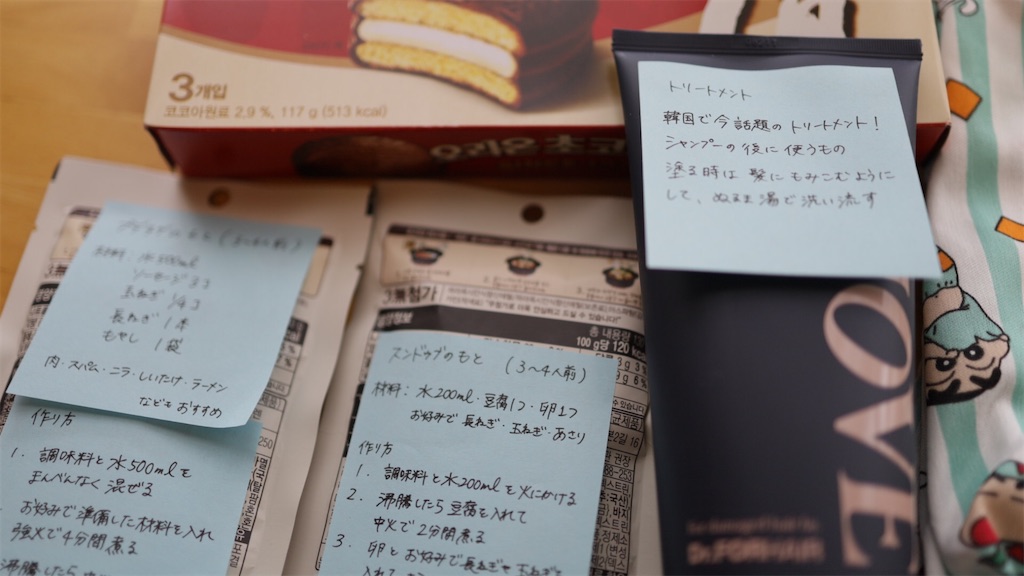 3개입
코코아원료 2.9 %, 117 g (513 kcal)
トリートメント
韓国で今話題のトリートメント!
シャンプーの後に使うもの
塗る時は髪にもみこむように
して、ぬるま湯で洗い流す
(3~4人前)
材料:水500ml
ソーセージ33
玉ねぎ 1/4コ
長ねぎ 1本
もやし 1袋
肉・スパム・ニラ・しいたけ・ラーメン
などもおすすめ
作り方
1. 調味料と水500mlを
まんべんなく混ぜる
お好みで準備した材料を入れ
強火で4分間煮る
沸騰したら
3無첨가
총 내용량
100 g당 120
スンドゥブのもと (3~4人前)
材料:水200ml・豆腐1つ・卵1つ
お好みで長ねぎ・玉ねぎ・あさり
作り方
1. 調味料と水200mlを火にかける
2. 沸騰したら豆腐を入れて
中火で2分間煮る
3. 卵とお好みで長ねぎや玉ねぎを
OVE
Dr.FORHAIR